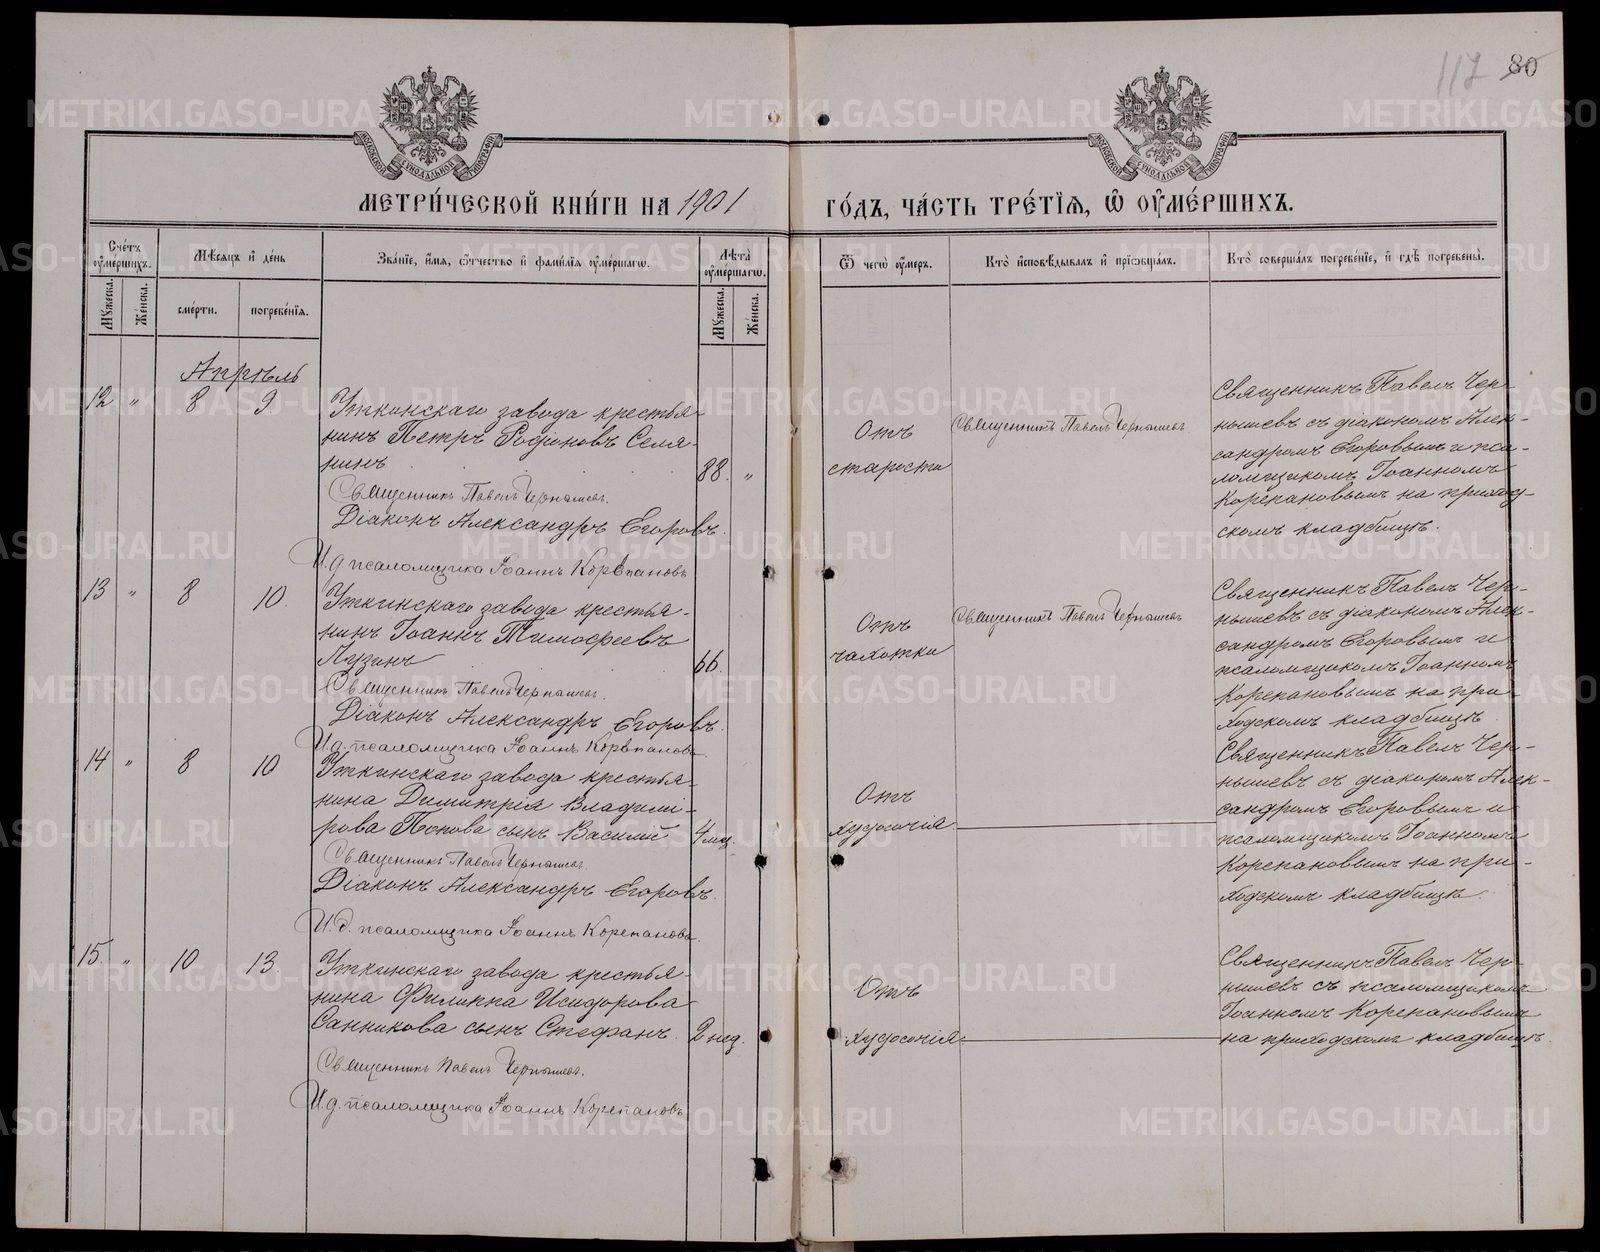 117 80
МЕТРИ́ЧЕСКОЙ КНИ́ГИ НА 1901
ГО́ДЪ, ЧА́СТЬ ТРЕ́ТІѦ, Ѽ ОУ҆МЕ́РШИХЪ.
Сче́тъ оу҆ме́ршихъ.
Мꙋ́жеска.
Же́нска.
Мѣ́сяцъ и҆ де́нь
сме́рти.
погребе́нїѧ.
Зва́нїе, и҆́мѧ, ѻ҆́тчество и҆ фами́лїѧ оу҆ме́ршагѡ.
Лѣ́та оу҆ме́ршагѡ.
Мꙋ́жеска.
Же́нска.
Ѿ чегѡ̀ оу҆́меръ.
Кто̀ и҆сповѣ́дывалъ и҆ прїѡбща́лъ.
Кто̀ соверша́лъ погребе́нїе, и҆ гдѣ̀ погребены̀.
Апрѣль
12 " 8 9.
Уткинскаго завода крестья-
нинъ Петръ Родіоновъ Селя-
нинъ
88. "
Священникъ Павелъ Чернышевъ.
Діаконъ Александръ Егоровъ.
И.д. псаломщика Іоаннъ Корепановъ
Отъ
старости
Священникъ Павелъ Чернышевъ
Священникъ Павелъ Чер-
нышевъ съ діакономъ Алек-
сандромъ Егоровымъ и пса-
ломщикомъ Іоанномъ
Корепановымъ на приход-
скомъ кладбищѣ.
13 " 8 10.
Уткинскаго завода крестья-
нинъ Іоаннъ Тимофеевъ
Пузинъ
66.
Священникъ Павелъ Чернышевъ.
Діаконъ Александръ Егоровъ.
И.д. псаломщика Іоаннъ Корепановъ.
Отъ
чахотки
Священникъ Павелъ Чернышевъ
Священникъ Павелъ Чер-
нышевъ съ діакономъ Алек-
сандромъ Егоровымъ и
псаломщикомъ Іоанномъ
Корепановымъ на при-
ходскомъ кладбищѣ
14 " 8 10
Уткинскаго завода крестья-
нина Димитрія Владимі-
рова Попова сынъ Василій
4 мц.
Священникъ Павелъ Чернышевъ
Діаконъ Александръ Егоровъ.
И.д. псаломщика Іоаннъ Корепановъ.
Отъ
худосочія
Священникъ Павелъ Чер-
нышевъ съ діакономъ Алек-
сандромъ Егоровымъ и
псаломщикомъ Іоанномъ
Корепановымъ на при-
ходскомъ кладбищѣ.
15. " 10 13.
Уткинскаго завода крестья-
нина Филиппа Исидорова
Санникова сынъ Стефанъ.
2 нед.
Священникъ Павелъ Чернышевъ.
И.д. псаломщика Іоаннъ Корепановъ
Отъ
худосочія
Священникъ Павелъ Чер-
нышевъ съ псаломщикомъ
Іоанномъ Корепановымъ
на приходскомъ кладбищѣ.
METRIKI.GASO-URAL.RU